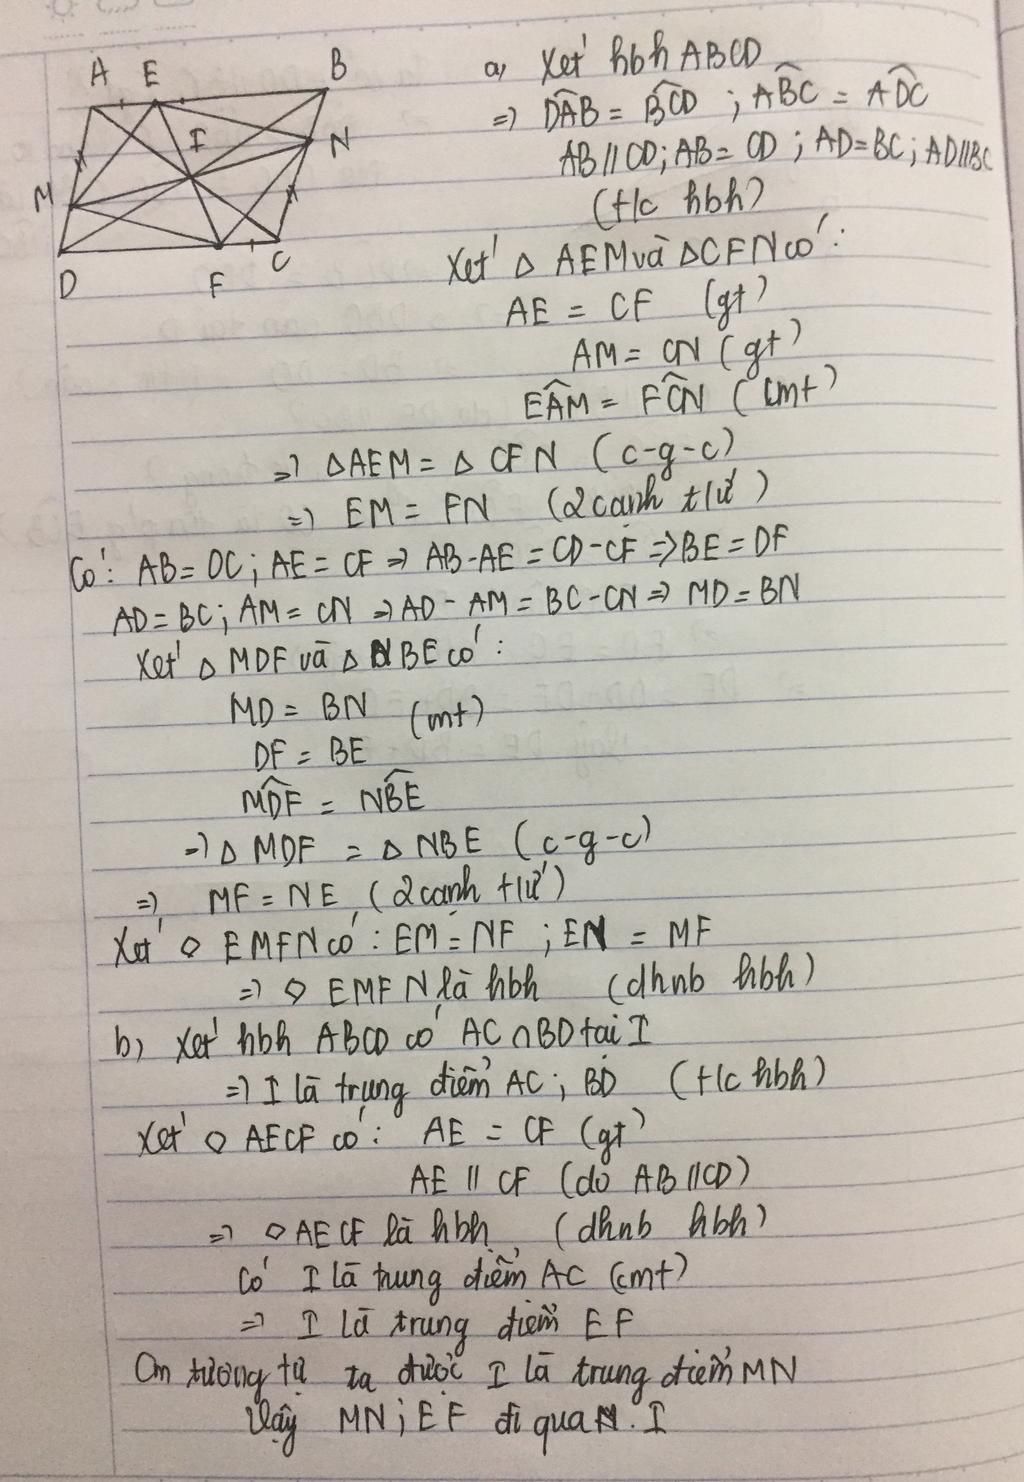 A E B
I
N
M
D F C
a, Xét hbh ABCD
=> DÂB = BĈD ; AB̂C = AD̂C
AB // CD; AB = CD ; AD = BC ; AD//BC
(t/c hbh)
Xét Δ AEM và ΔCFN có:
AE = CF (gt)
AM = CN (gt)
EÂM = FĈN (cmt)
=> ΔAEM = Δ CFN (c-g-c)
=> EM = FN (2 cạnh t/ứ)
Có: AB = DC ; AE = CF => AB-AE = CD-CF => BE = DF
AD = BC; AM = CN => AD - AM = BC - CN => MD = BN
Xét Δ MDF và Δ NBE có:
MD = BN (cmt)
DF = BE
MD̂F = NB̂E
=> Δ MDF = Δ NBE (c-g-c)
=> MF = NE (2 cạnh t/ứ)
Xét ◇ EMFN có: EM = NF ; EN = MF
=> ◇ EMFN là hbh (dhnb hbh)
b, Xét hbh ABCD có AC ∩ BD tại I
=> I là trung điểm AC ; BD (t/c hbh)
Xét ◇ AECF có: AE = CF (gt)
AE // CF (do AB //CD)
=> ◇ AECF là hbh (dhnb hbh)
Có I là trung điểm AC (cmt)
=> I là trung điểm EF
Cm tương tự ta được I là trung điểm MN
Vậy MN ; EF đi qua I